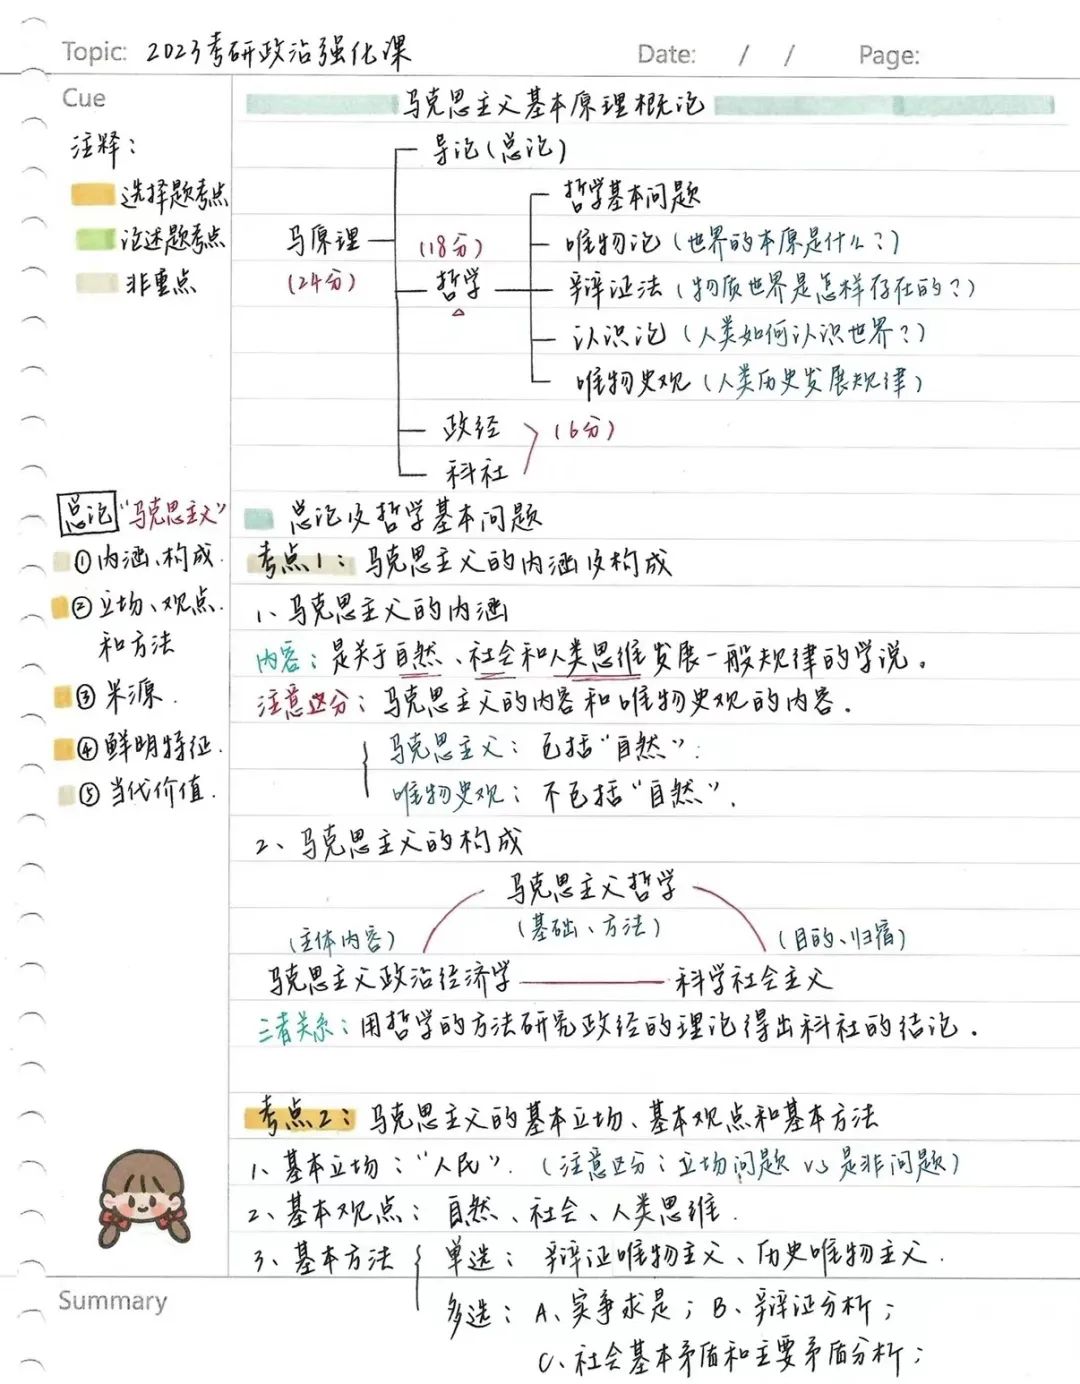 Topic: 2023考研政治强化课 Date: / / Page:
Cue
注释：
选择题考点
论述题考点
非重点
马克思主义基本原理概论
导论(总论)
马原理
(24分)
(18分)
哲学
哲学基本问题
唯物论(世界的本原是什么？)
辩证法(物质世界是怎样存在的？)
认识论(人类如何认识世界？)
唯物史观(人类历史发展规律)
政经
科社
(6分)
总论"马克思主义"
①内涵、构成.
②立场、观点.
和方法
③来源.
④鲜明特征.
⑤当代价值.
总论及哲学基本问题
考点1：马克思主义的内涵及构成
1、马克思主义的内涵
内容：是关于自然、社会和人类思维发展一般规律的学说。
注意区分：马克思主义的内容和唯物史观的内容.
马克思主义：包括"自然".
唯物史观：不包括"自然".
2、马克思主义的构成
马克思主义哲学
(基础、方法)
(主体内容)
(目的、归宿)
马克思主义政治经济学
科学社会主义
三者关系：用哲学的方法研究政经的理论得出科社的结论.
考点2：马克思主义的基本立场、基本观点和基本方法
1、基本立场："人民".(注意区分：立场问题 vs 是非问题)
2、基本观点：自然、社会、人类思维.
3、基本方法
单选：辩证唯物主义、历史唯物主义.
多选：A、实事求是；B、辩证分析；
C、社会基本矛盾和主要矛盾分析；
Summary